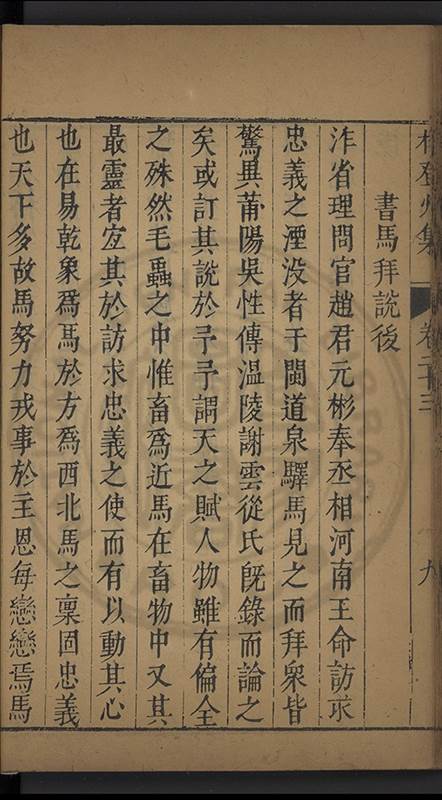 林登州集 卷二十三 九
書馬拜說後
汴省理問官趙君元彬奉丞相河南王命訪求
忠義之湮没者于閩道泉驛馬見之而拜衆皆
驚異莆陽吳性傳溫陵謝雲從氏旣錄而論之
矣或訂其說於予予謂天之賦人物雖有偏全
之殊然毛蟲之中惟畜爲近馬在畜物中又其
最靈者宐其於訪求忠義之使而有以動其心
也在易乾象爲馬於方爲西北馬之稟固忠義
也天下多故馬努力戎事於主恩每戀戀焉馬